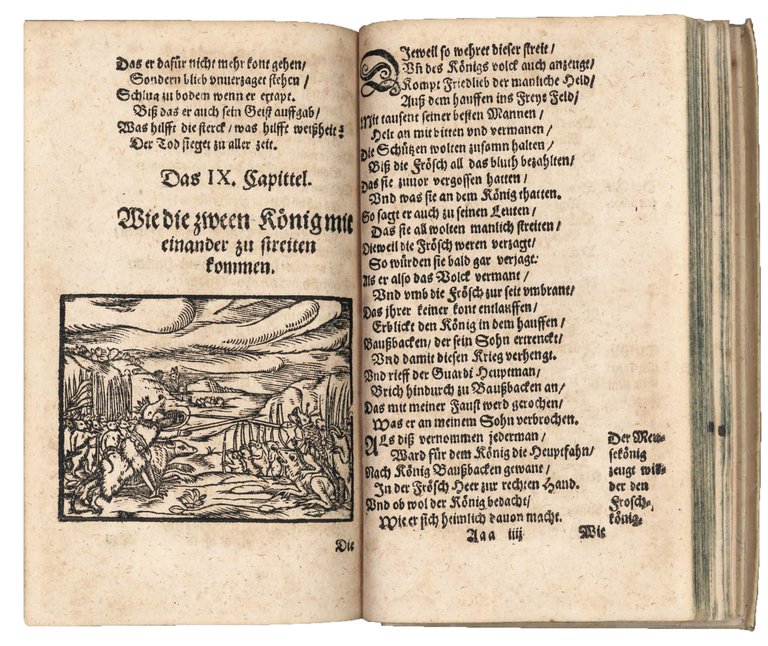 Das er dafür nicht mehr kont gehen/
Sondern blieb vnuerzaget stehen/
Schlug zu bodem wenn er ertapt.
Biß das er auch sein Geist auffgab/
Was hilfft die sterck/was hilfft weißheit?
Der Tod sieget zu aller zeit.
Das IX. Capittel.
Wie die zween König mit
einander zu streiten
kommen.
Die
DJeweil so wehret dieser streit/
Vñ des Königs volck auch anzeugt/
Kompt Friedlieb der manliche Held/
Auß dem hauffen ins Freye Feld/
Mit tausent seiner besten Mannen/
Helt an mit bitten vnd vermanen/
Die Schützen wolten zusamn halten/
Biß die Frösch all das bluth bezahlten/
Das sie zuuor vergossen hatten/
Vnd was sie an dem König thatten.
So sagt er auch zu seinen Leuten/
Das sie all wolten manlich streiten/
Dieweil die Frösch weren verzagt/
So würden sie bald gar verjagt.
Als er also das Volck vermant/
Vnd vmb die Frösch zur seit vmbrant/
Das jhrer keiner kont entlauffen/
Erblickt den König in dem hauffen/
Baußbacken/der sein Sohn ertrenckt/
Vnd damit diesen Krieg verhengt.
Vnd rieff der Guardi Heuptman/
Brich hindurch zu Baußbacken an/
Das mit meiner Faust werd gerochen/
Was er an meinem Sohn verbrochen.
ALs diß vernommen jederman/
Ward für dem König die Heuptfahn/
Nach König Baußbacken gewant/
In der Frösch Heer zur rechten Hand.
Vnd ob wol der König bedacht/
Wie er sich heimlich dauon macht.
Der Meu-
sekönig
zeugt wi-
der den
Frosch-
könig.
Aaa iiij
Wie